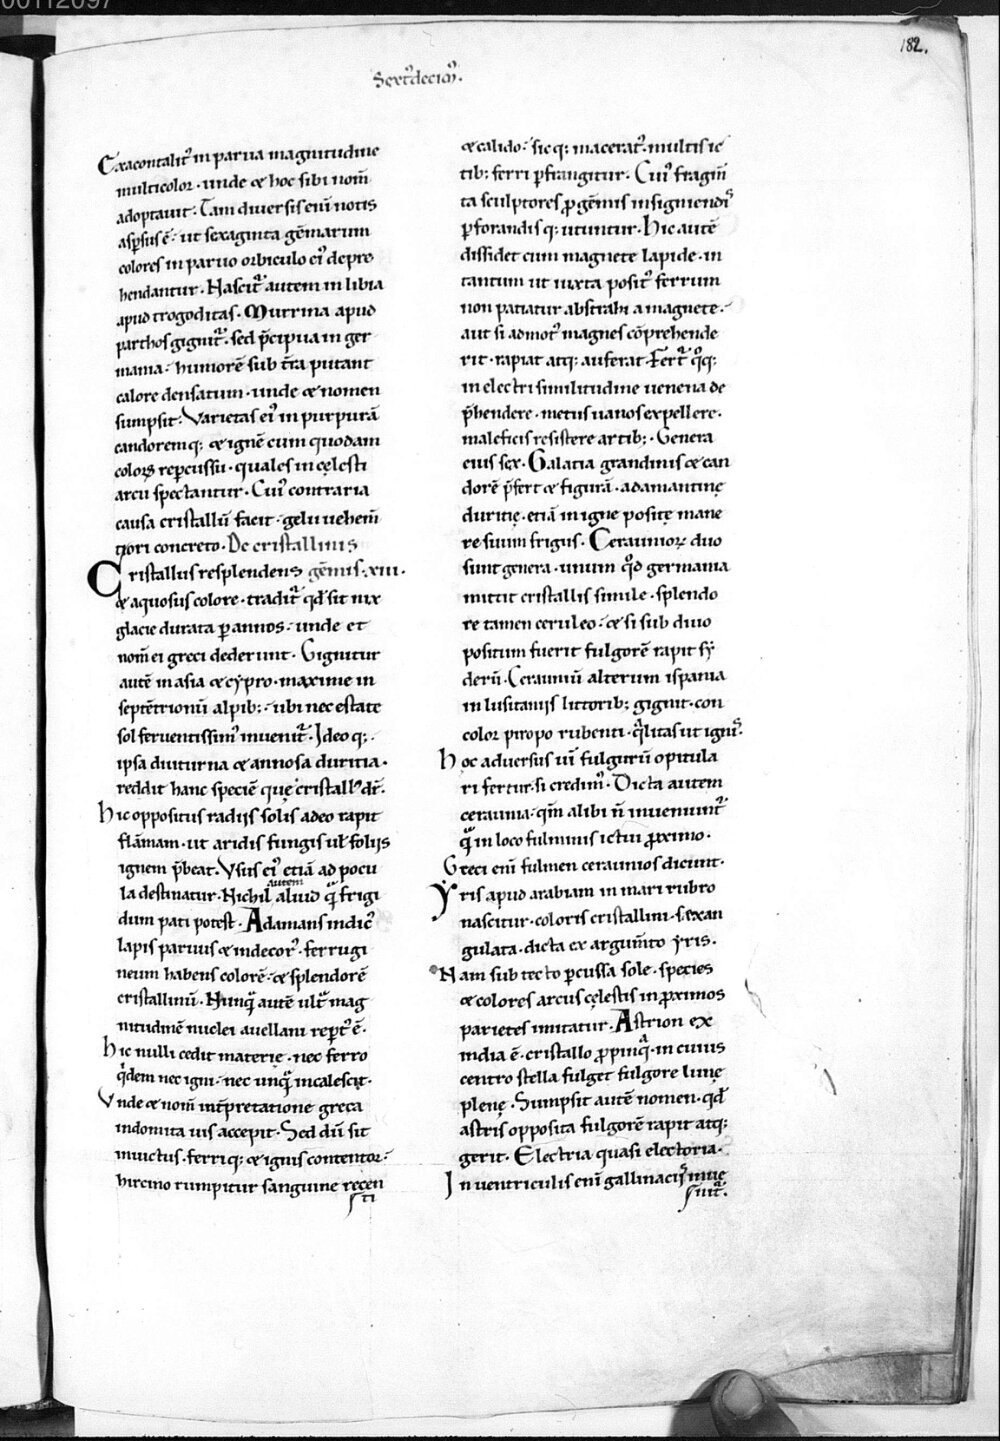 00112097
182.
Sext᷒decim᷒.
Exacontalit᷒ in parua magnitudine
multicolor · unde & hoc sibi nom̄
adoptauit. Tam diuersis eni notis
asp̱sus ē · ut sexaginta gēmarum
colores in paruo orbiculo ei᷒ depre
hendantur. Nascit᷑ autem in libia
apud trogoditas. Murrina apud
parthos gignit᷑ · sed p̄cipua in ger
mania · humorē sub t̄ra putant
calore densatum · unde & nomen
sumpsit. Varietas ei᷒ in purpurā
candoremq; & ignē cum quodam
coloꝝ reꝑcussu · quales in cęlesti
arcu spectantur. Cui᷒ contraria
causa cristallū facit · gelu uehem̄
tiori concreto. De cristallinis
Cristallus resplendens gēmis. xiii.
& aquosus colore · tradit᷑ qd̄ sit nix
glacie durata ꝑ annos · unde et
nom̄ ei greci dederunt. Gignitur
autē in asia & cypro · maxime in
septētrionū alpib; · ubi nec estate
sol feruentissim᷒ inuenit᷑. Ideoq; ·
ipsa diuturna & annosa duritia ·
reddit hanc speciē quę cristall᷒ dr̄.
hic oppositus radiis solis adeo rapit
flāmam · ut aridis fungis ul̄ foliis
ignem p̄beat. Vsus ei᷒ etiā ad pocu
la destinatur. Nichil autem aliud qͣ̄ frigi
dum pati potest. Adamans indic᷒
lapis paruus & indecor᷒ · ferrugi
neum habens colorē · & splendorē
cristallinū. Nunqͣ̄ autē ult᷑ mag
nitudinē nuclei auellani reꝑt᷒ ē.
hic nulli cedit materię · nec ferro
q̇dem nec igni · nec unqͣ̄ incalescit.
Vnde & nom̄ int̄pretatione greca
indomita uis accepit. Sed dū sit
inuictus · ferriq; & ignis contentor ·
hircino rumpitur sanguine recen
sti
& calido · sicq; macerat᷒ · multis ic
tib; ferri ꝑfrangitur. Cui᷒ fragm̄
ta sculptores ꝓ gēmis insigniendi᷒
ꝑforandisq; utuntur. Hic autē
dissidet cum magnete lapide · in
tantum ut iuxta posit᷒ ferrum
non patiatur abstrahi a magnete ·
aut si admot᷒ magnes cōprehende
rit · rapiat atq; auferat. Fert᷑ q̊q;
in electri similitudine uenena de
p̄hendere · metus uanos expellere ·
maleficis resistere artib; · Genera
eius sex. Galatia grandinis & can
dorē p̄fert & figurā · adamantinę
duritię · etiā in igne positę mane
re suum frigus. Cerauniorꝝ duo
sunt genera · unum qd̄ germania
mittit cristallis simile · splendo
re tamen ceruleo · & si sub diuo
positum fuerit fulgorē rapit sy
derū. Cerauniū alterum ispania
in lusitaniis littorib; gignit · con
color piropo rubenti · q̄litas ut igni᷒.
hoc aduersus uī fulgurū opitula
ri fertur · si credim᷒. Dicta autem
ceraunia · qm̄ alibi n̄ inueniunt᷑
qͣ̄ in loco fulminis ictui ꝓximo.
Greci eni fulmen ceraunios dicunt.
Yris apud arabiam in mari rubro
nascitur · coloris cristallini · sexan
gulata · dicta ex argum̄to yris.
Nam sub tecto ꝑcussa sole · species
& colores arcus cęlestis in ꝓximos
parietes imitatur. Astrion ex
india ē · cristallo ꝓpinqͣ · in cuius
centro stella fulget fulgore lunę
plenę. Sumpsit autē nomen · qd̄
astris opposita fulgorē rapit atq;
gerit. Electria quasi electoria.
In uentriculis eni gallinaci᷒ inue
nit᷑.